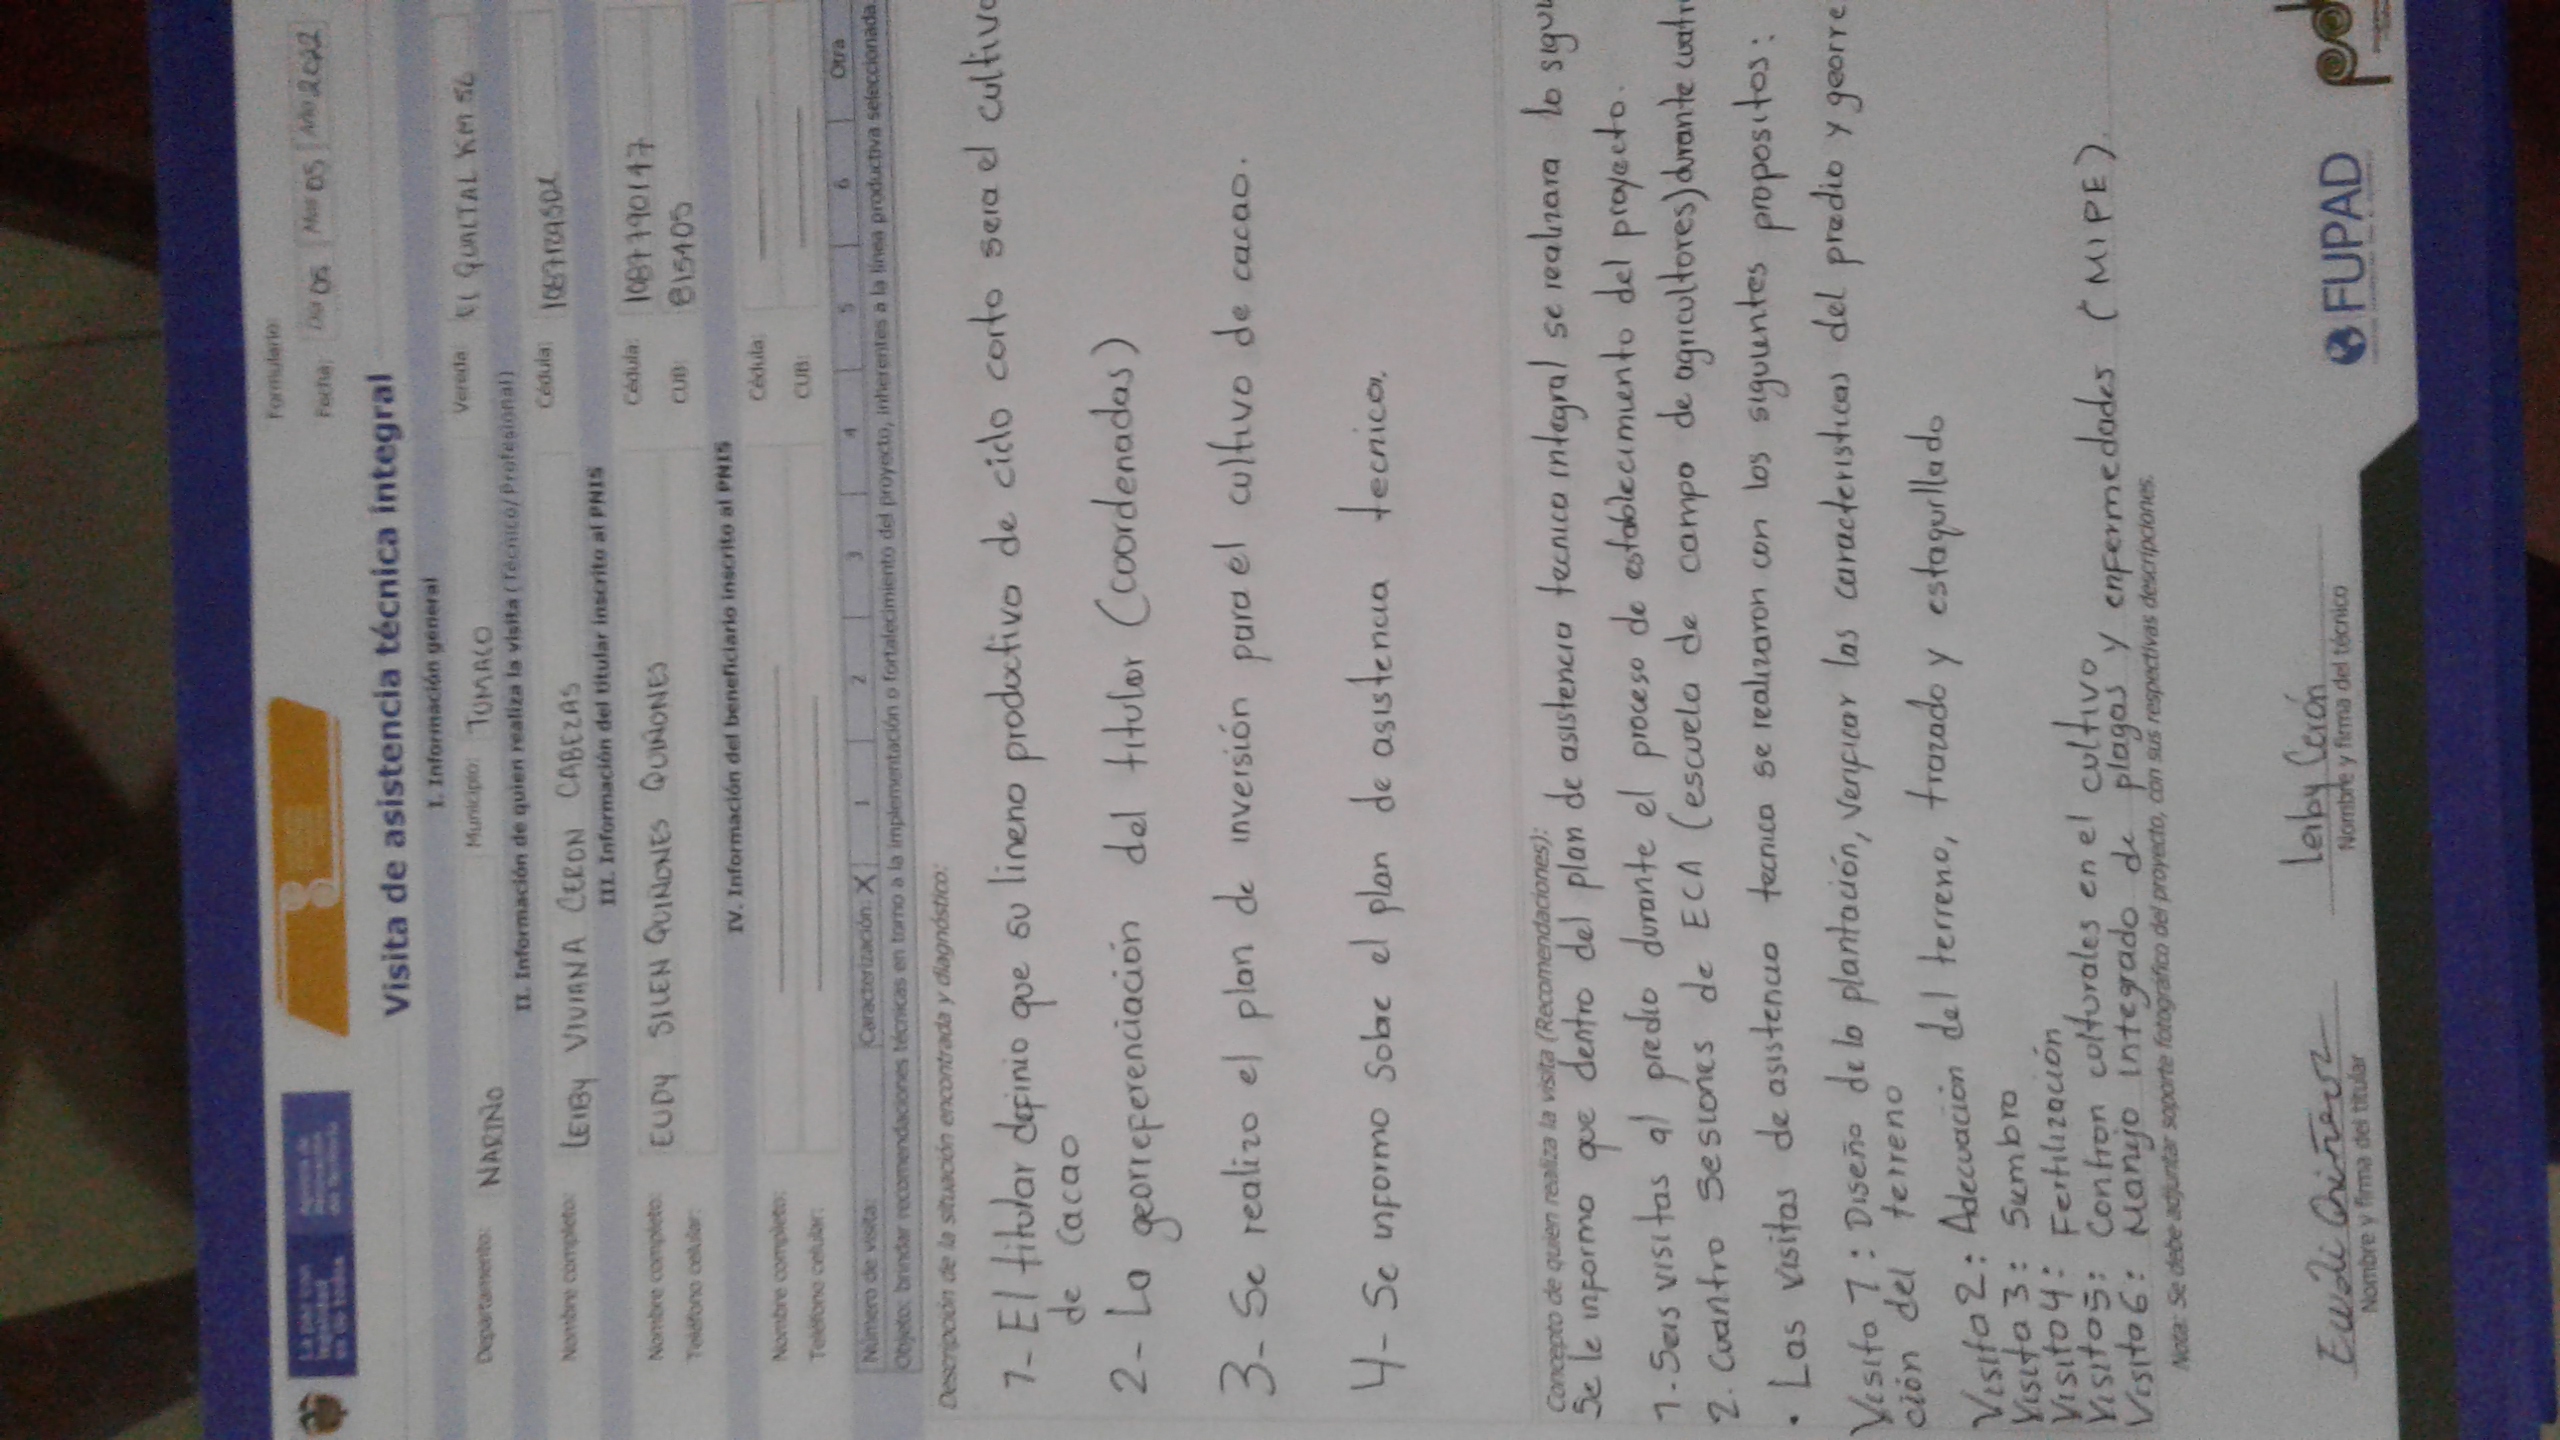 Formulario:
Fecha: Día 06 Mes 05 Año 2022
Visita de asistencia técnica integral
I. Información general
Departamento: NARIÑO Municipio: TUMACO Vereda: EL GUALTAL KM 56
II. Información de quien realiza la visita (Técnico/Profesional)
Nombre completo: LEIBY VIVIANA CERON CABEZAS Cédula:
III. Información del titular inscrito al PNIS
Nombre completo: EUDY SILEN QUIÑONES QUIÑONES Cédula: 1087790147
Teléfono celular: CUB: 815405
IV. Información del beneficiario inscrito al PNIS
Nombre completo: Cédula:
Teléfono celular: CUB:
Número de visita: Caracterización X 1 2 3 4 5 6 Otra
Objeto: brindar recomendaciones técnicas en torno a la implementación o fortalecimiento del proyecto, inherentes a la línea productiva seleccionada.
Descripción de la situación encontrada y diagnóstico:
1- El titular definio que su linea productiva de ciclo corto sera el cultivo
de Cacao
2- La georreferenciación del titular (Coordenadas)
3- Se realizo el plan de inversión para el cultivo de cacao.
4- Se informo sobre el plan de asistencia tecnica.
Concepto de quien realiza la visita (Recomendaciones):
Se le informo que dentro del plan de asistencia tecnica integral se realizara lo
1- Seis visitas al predio durante el proceso de establecimiento del proyecto.
2. Cuantro Sesiones de ECA (escuela de campo de agricultores) durante
• Las visitas de asistencia tecnica se realizaron con los siguientes propositos:
Visita 1: Diseño de la plantación, verificar las caracteristicas del predio y georre
ción del terreno
Visita 2: Adecuación del terreno, trazado y estaquillado
Visita 3: Siembra
Visita 4: Fertilización
Visita 5: Contron culturales en el cultivo
Visita 6: Manejo integrado de plagas y enfermedades (MIPE).
Nota: Se debe adjuntar soporte fotográfico del proyecto, con sus respectivas descripciones.
Leiby Cerón
Nombre y firma del titular Nombre y firma del técnico
FUPAD